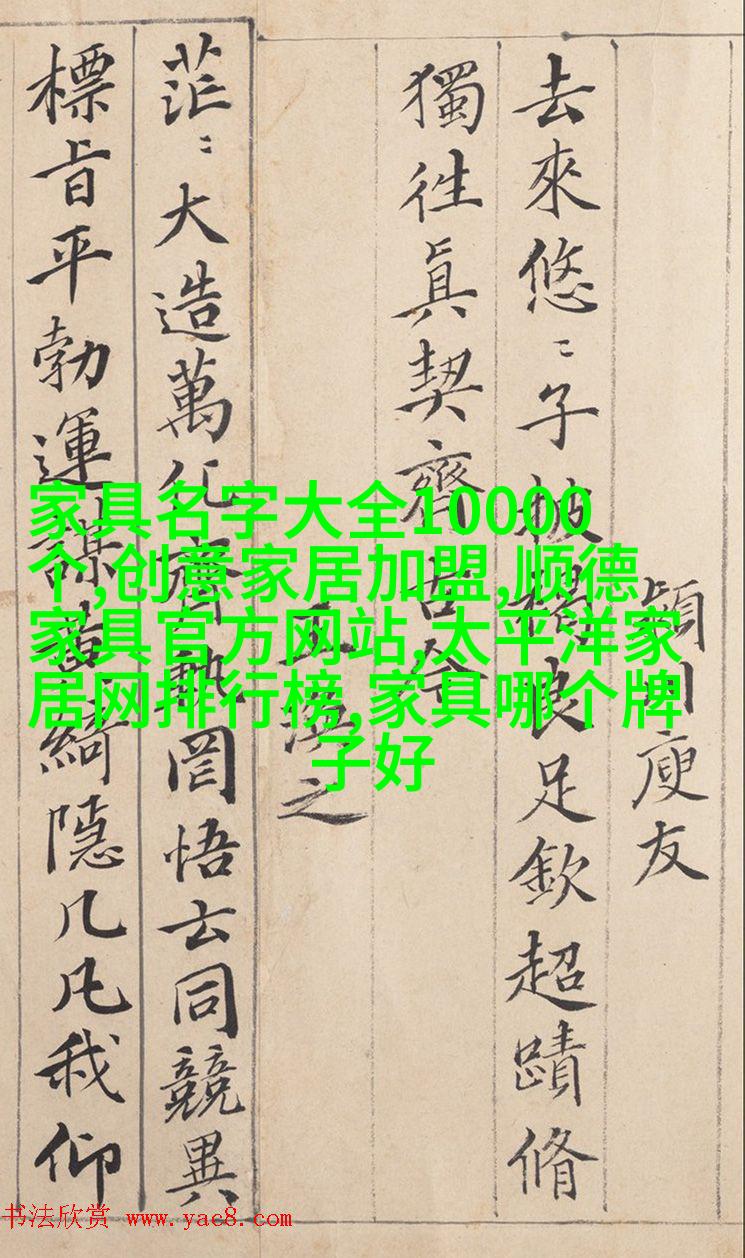 頴川庾友
去來悠〻子披褐良足欽超蹟脩
獨往眞契齊古今
王渙之
茫〻大造萬化齊軌罔悟玄同競異
標旨平勃運謀黃綺隱几凡我仰
家具名字大全10000
个,创意家居加盟,顺德
家具官方网站,太平洋家
居网排行榜,家具哪个牌
子好
书法欣赏 www.yac8.com